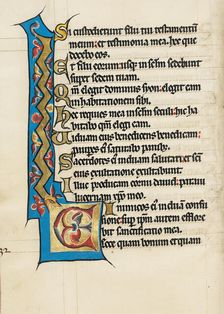 Si custodierint filii tui testamentū
meum: et testimonia mea hec que
docebo eos.
Et filii eorum: usq; in seclm sedebunt
super sedem tuam.
Qm̄ elegit dominus syon: elegit eam
in habitationem sibi.
Hec requies mea in seclm seculi: hic ha
bitabo qm̄ elegi eam.
Viduam eius benedicens benedicam:
pauperes ei saturabo panib;
Sacerdotes ei induam salutari: et sci
eius exultatione exultabunt.
Illuc producam cornu dauid: paraui
lucernam xp̄o meo.
Inimicos ei induam confu
sione: sup ip̄m autem efflore
bit sanctificatio mea.
Ecce quam bonum et quam